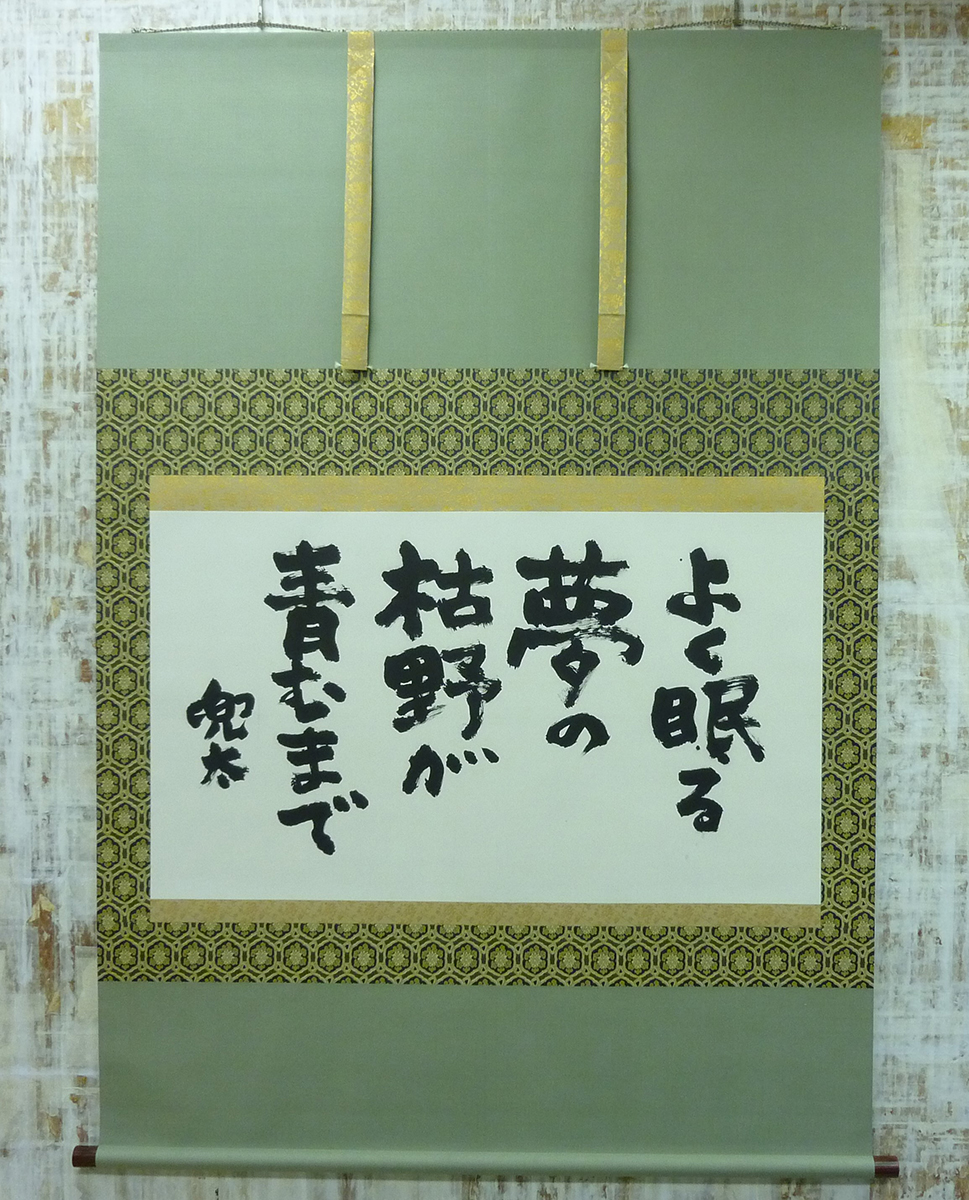 よく眠る
夢の
枯野が
青むまで
兜太